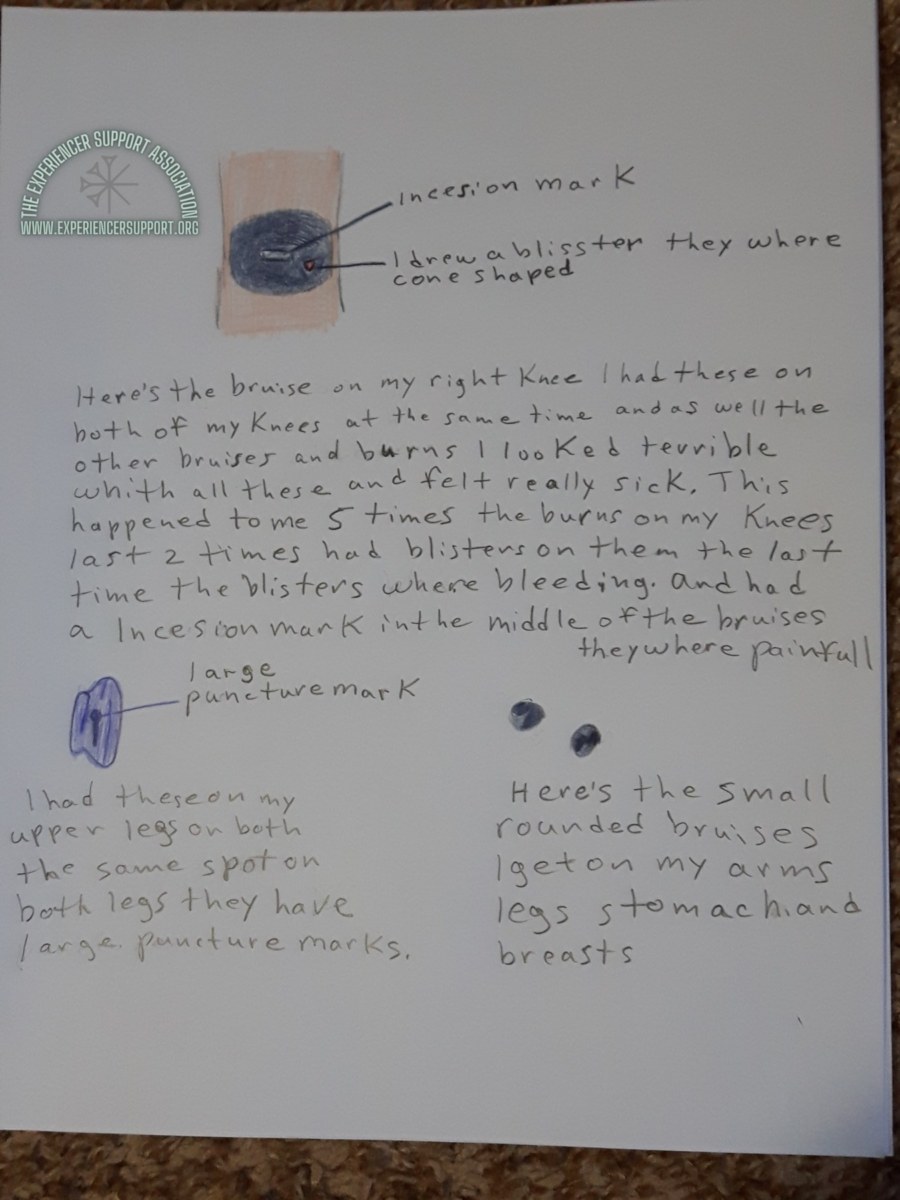 THE EXPERIENCER SUPPORT ASSOCIATION
WWW.EXPERIENCERSUPPORT.ORG
Incesion mark
I drew a blisster they where
cone shaped
Here's the bruise on my right Knee I had these on
both of my Knees at the same time and as well the
other bruises and burns I looked terrible
whith all these and felt really sick. This
happened to me 5 times the burns on my Knees
last 2 times had blisters on them the last
time the blisters where bleeding. and had
a Incesion mark in the middle of the bruises
they where painfull
large
puncture mark
I had these on my
upper legs on both
the same spot on
both legs they have
large puncture marks.
Here's the small
rounded bruises
I get on my arms
legs stomach and
breasts